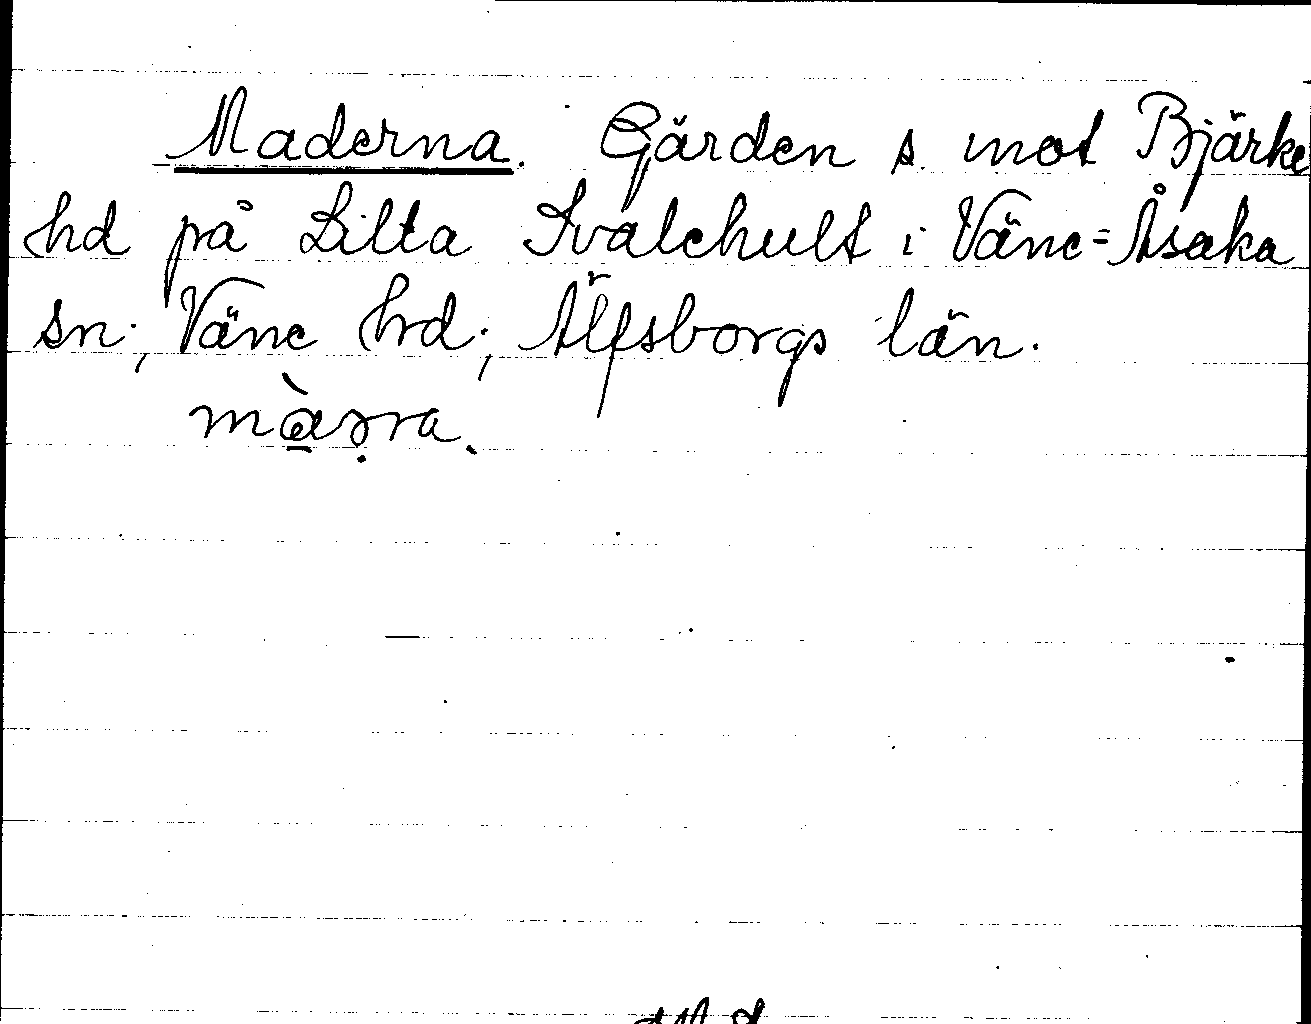 Maderna. Gärden s. mot Bjärke
hd på Lilla Svalehult i Väne-Åsaka
sn; Väne hrd; Älfsborgs län.